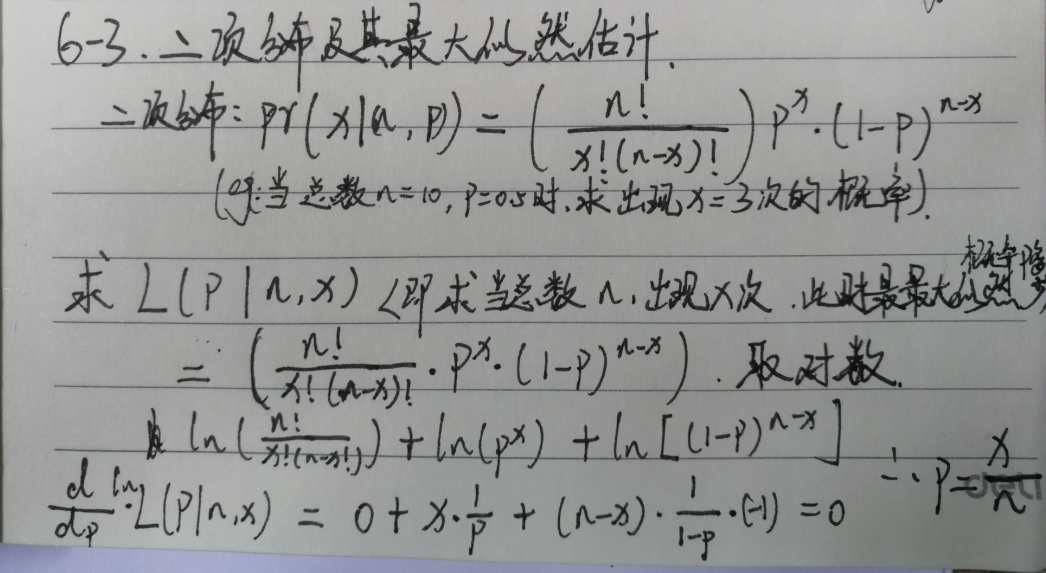 6-3. 二项分布及其最大似然估计.
二项分布: pr(x|n, p) = (n!/x!(n-x)!) p^x · (1-p)^(n-x)
(eg: 当总数n=10, p=0.5时, 求出现x=3次的概率).
概率
求 L(P|n, x) <即求当总数n, 出现x次, 此时最最大似然
= (n!/x!(n-x)! · p^x · (1-p)^(n-x)). 取对数.
ln(n!/x!(n-x!)) + ln(p^x) + ln[(1-p)^(n-x)]
d/dp ln·L(P|n,x) = 0 + x·1/p + (n-x)·1/(1-p)·(-1) = 0 ∴ p = x/n